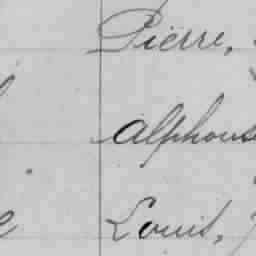 Pierre,
Alphons
Louis,